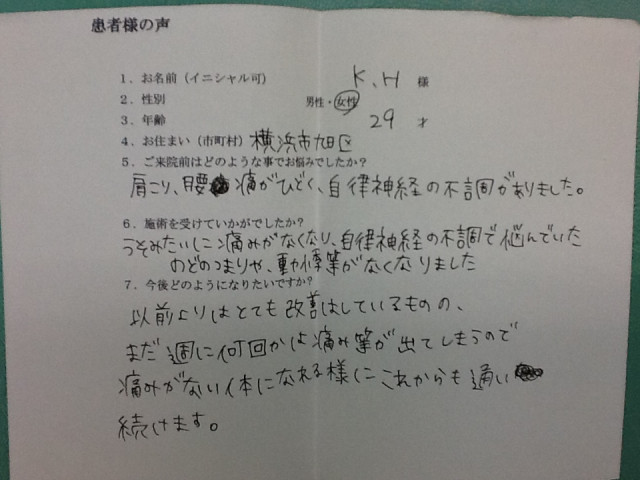 患者様の声
1．お名前（イニシャル可） K、H 様
2．性別 男性・女性
3．年齢 29 才
4．お住まい（市町村） 横浜市旭区
5．ご来院前はどのような事でお悩みでしたか？
肩こり、腰痛がひどく、自律神経の不調がありました。
6．施術を受けていかがでしたか？
うそみたいに痛みがなくなり、自律神経の不調で悩んでいた
のどのつまりや、動悸等がなくなりました
7．今後どのようになりたいですか？
以前よりはとても改善はしているものの、
まだ週に何回かは痛み等が出てしまうので
痛みがない体になれる様にこれからも通い
続けます。